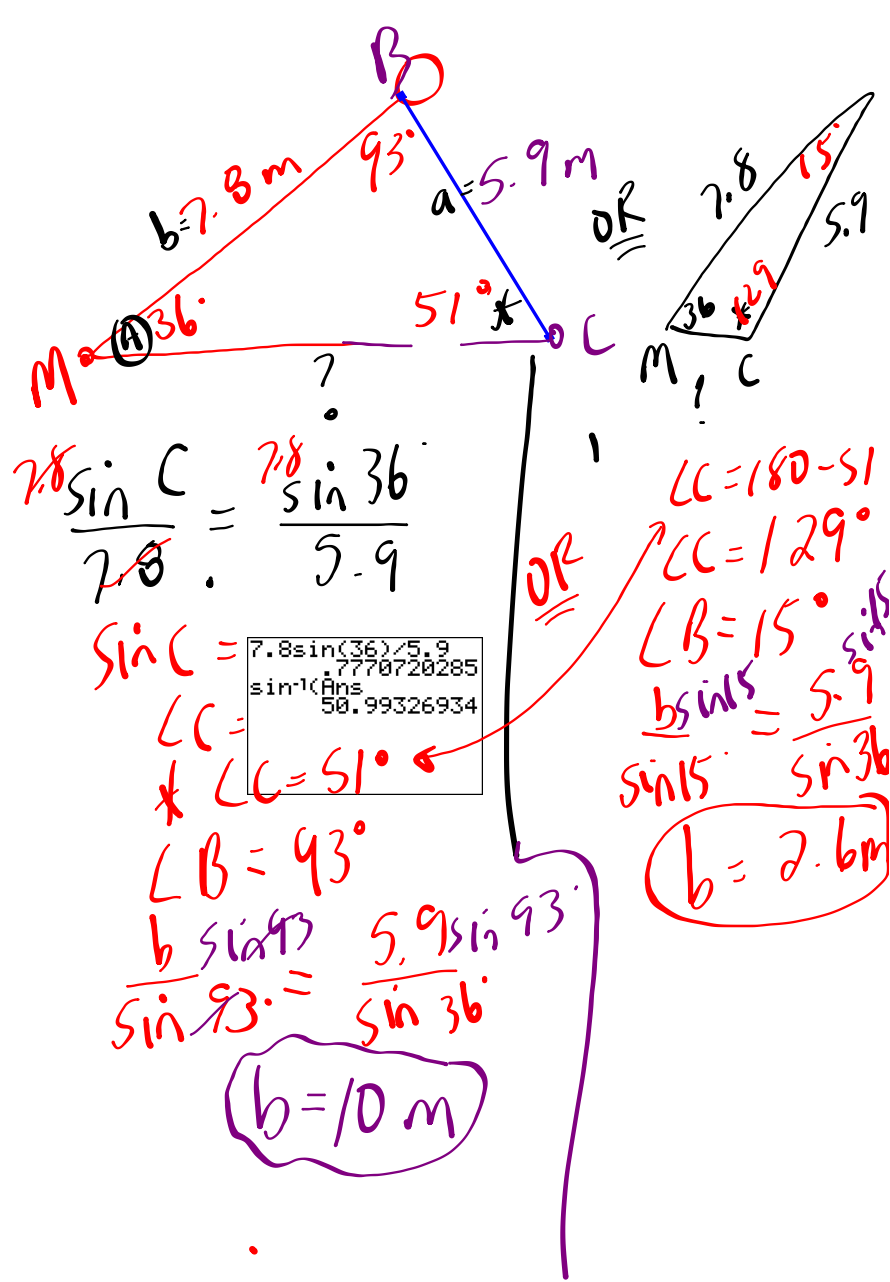 B
93°
b=7.8 m
a=5.9 m
OR
7.8
15°
5.9
M
A
36°
51° *
C
?
36
*129
M ? C
7.8 sin C = 7.8 sin 36°
7.8 5.9
sin C =
7.8sin(36)/5.9
.7770720285
sin⁻¹(Ans
50.99326934
∠C=
* ∠C=51°
∠B=93°
b sin93 = 5.9 sin 93°
sin 93° sin 36°
b=10 m
OR
∠C=180-51
∠C=129°
∠B=15°
b sin15 = 5.9 sin15
sin15° sin36
b=2.6m